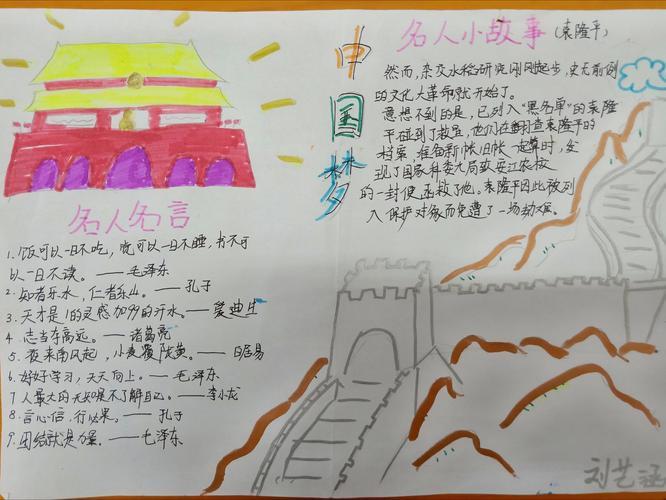 中国梦
名人小故事(袁隆平)
然而,杂交水稻研究刚刚起步,史无前例
的文化大革命就开始了。
意想不到的是,已列入“黑名单”的袁隆
平碰到了救星,他们在翻查袁隆平的
档案,准备新帐旧帐一起算时,发
现了国家科委九局致安江农校
的一封便函救了他。袁隆平因此被列
入保护对象而免遭了一场劫难。
名人名言
1. 饭可以一日不吃,觉可以一日不睡,书不可
以一日不读。——毛泽东
2. 知者乐水,仁者乐山。——孔子
3. 天才是1的灵感加99的汗水。——爱迪生
4. 志当存高远。——诸葛亮
5. 夜来南风起,小麦覆陇黄。——白居易
6. 好好学习,天天向上。——毛泽东
7 人最大的无知是不了解自己。——李小龙
8. 言必信,行必果。——孔子
9. 团结就是力量。——毛泽东
刘艺涵